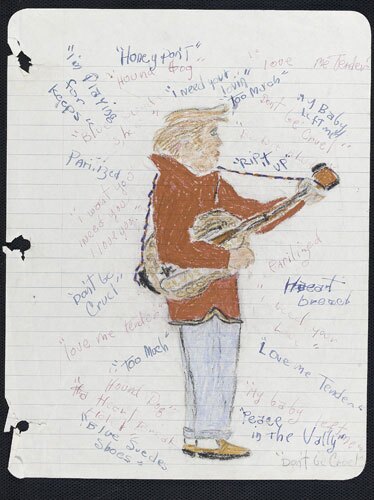 "I'm Playing
for
keeps"
"Honey don't"
Hound Dog
"I need your
lovin
"Too Much"
"love me Tender"
"My Baby
Left me"
Don't Be Cruel"
"Blue
"Rip it up"
Parilized
"I want you
I need you
I love you"
Parilized
"Don't be
Cruel"
Heart
breack
I need your
Love
"love me tender"
"Too Much"
"Love me Tender"
Hound Dog
"My baby left me"
"Peace
in the Vally"
"Blue Suede
Shoes"
"Don't be Cruel"